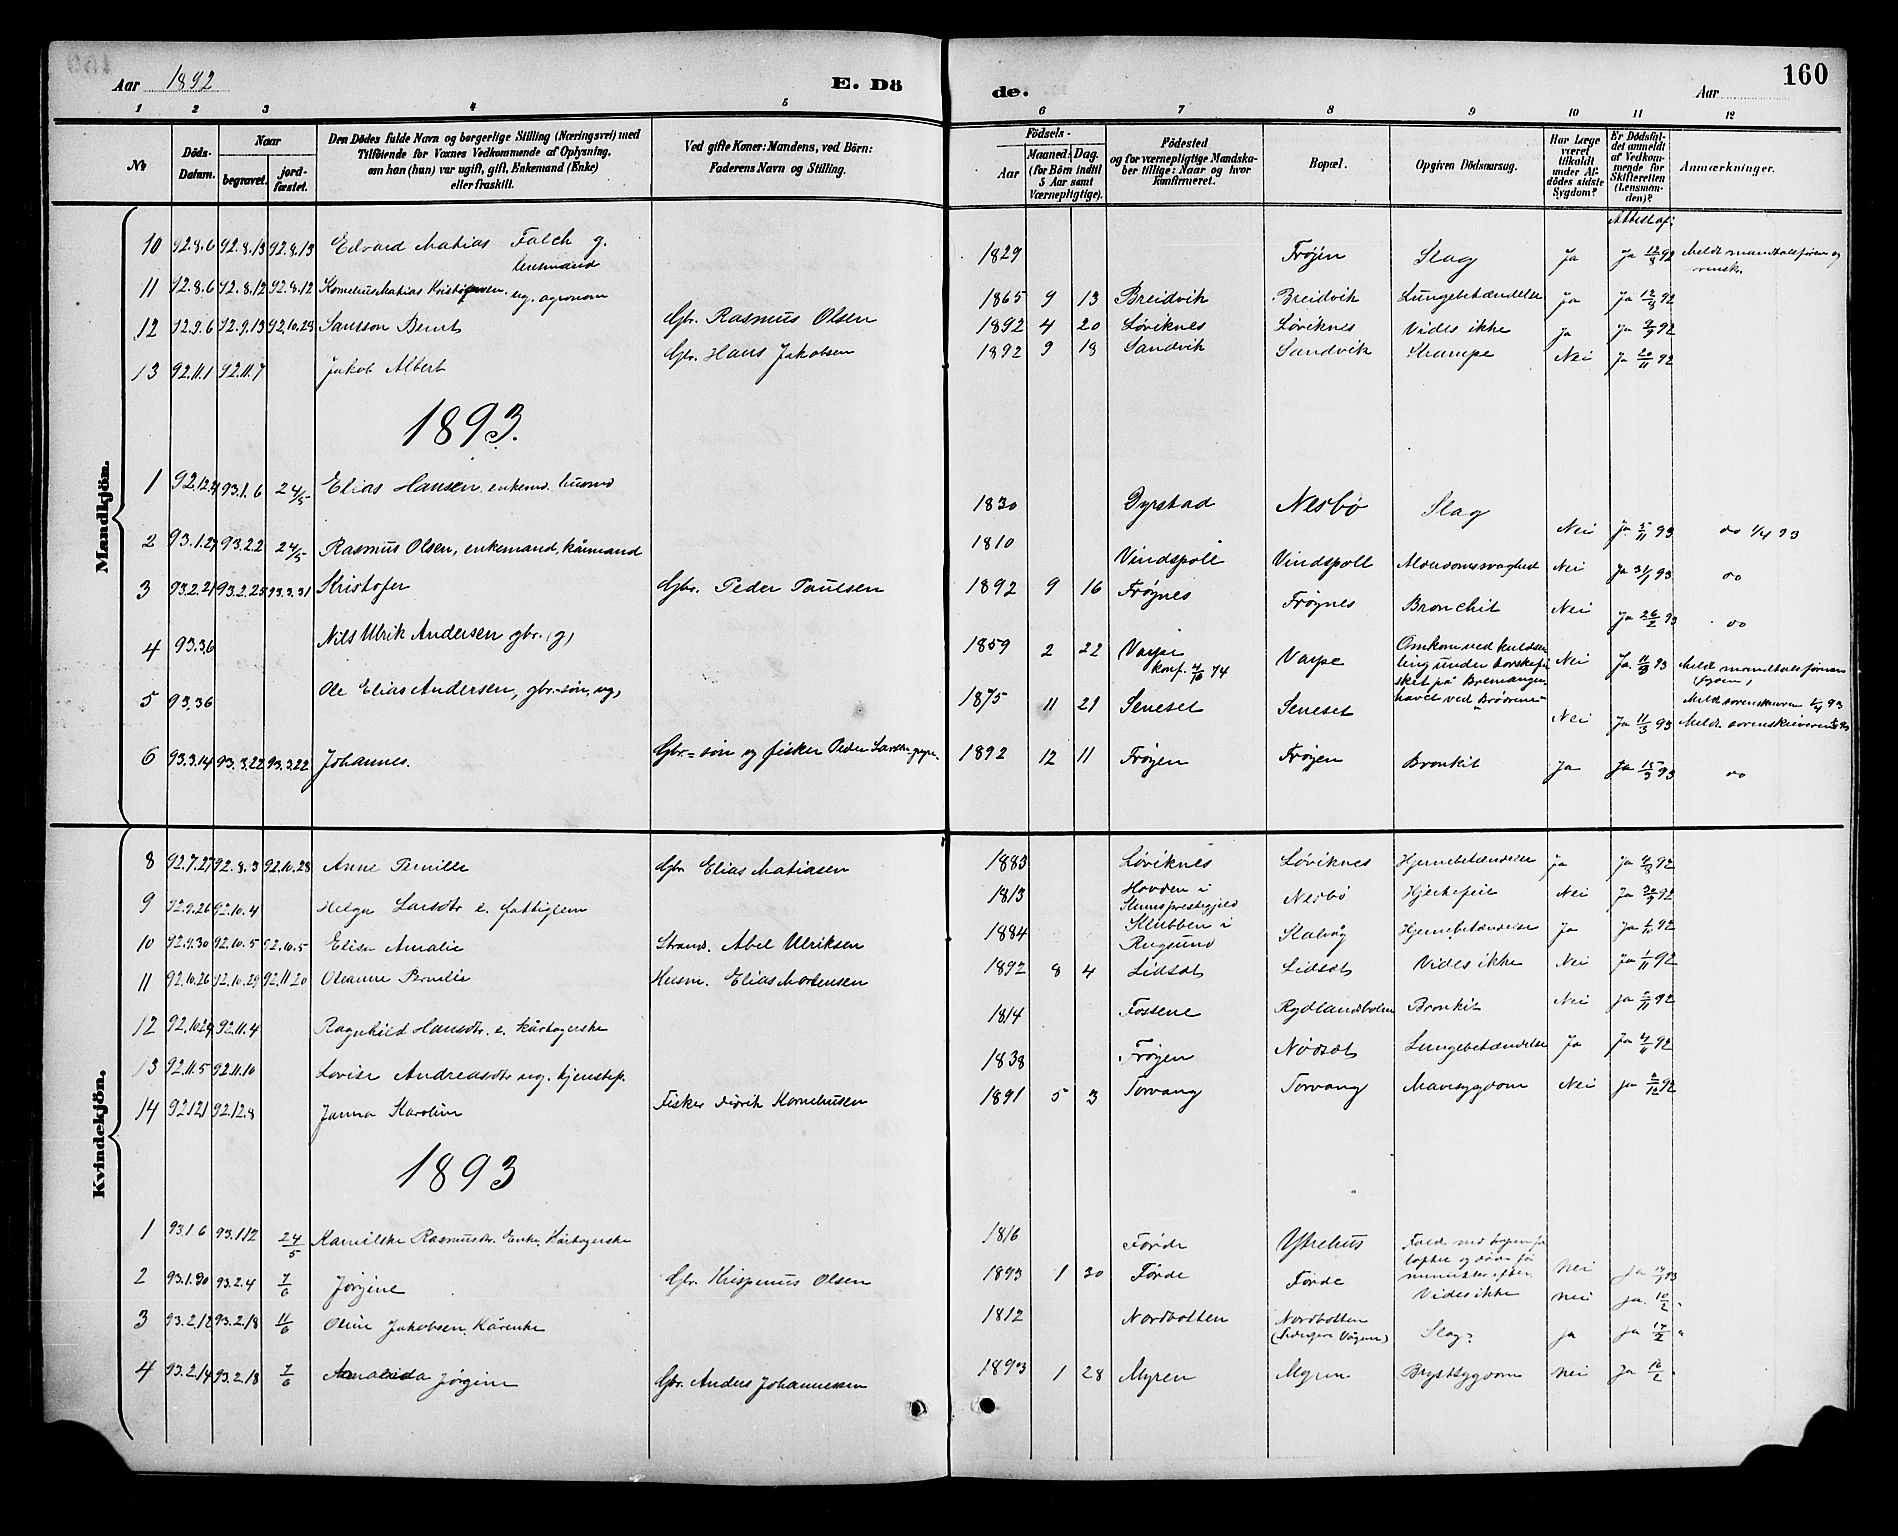 160
Aar 1892
E. Dö
de.
Aar
1 2 3 4 5 6 7 8 9 10 11 12
№
Döds-Datum.
Naar
begravet.
jord-fæstet.
Den Dödes fulde Navn og borgerlige Stilling (Næringsvei) med
Tilföiende for Voxnes Vedkommende af Oplysning.
om han (hun) var ugift, gift, Enkemand (Enke)
eller fraskilt.
Ved gifte Koner: Mandens, ved Börn:
Faderens Navn og Stilling.
Födsels-
Aar
Maaned: Dag.
(for Börn indtil
5 Aar samt
Værnepligtige).
Födested
og for værnepligtige Mandska-
ber tillige: Naar og hvor
Konfirmeret.
Bopæl.
Opgiven Dödsaarsag.
Har Læge
været
tilkaldt
under Af-
dödes sidste
Sygdom?
Er Dödsfal-
det anmeldt
af Vedkom-
mende for
Skifteretten
(Lensman-
den)?
Anmærkninger.
Mandkjön.
Attest af:
10 92.8.6 92.8.13 92.8.13 Edvard Matias Falch g. lensmand 1829 Frøjen Slag Ja Ja 12/8 92 Meldt mandtalsføren og
11 92.8.6 92.8.12 92.8.12 Kornelius Matias Kristofersen. ug. agronom 1865 9 13 Breidvik Breidvik Lungebetændelse Ja Ja 12/8 92
12 92.9.6 92.9.13 92.10.28 Samson Bernt Gbr. Rasmus Olsen 1892 4 20 Løviknes Løviknes Vides ikke Ja Ja 92
13 92.11.1 92.11.7 Jakob Albert Gbr. Hans Jakobsen 1892 9 18 Sandvik Sandvik Krampe Nei Ja 20/11 92
1893.
1 92.12. 93.1.6 24/5 Elias Hansen, enkem. husmd 1830 Dyrstad Nesbø Slag Nei Ja 93 oo 1/4 93
2 93.1.27 93.2.2 24/5 Rasmus Olsen, enkemand, kårmand 1810 Vindspoll Vindspoll Alderdomssvaghed Nei Ja 31/1 93 oo
3 93.2.21 93.2.25 93.3.31 Kristofer Gbr. Peder Paulsen 1892 9 16 Frøynes Frøynes Bronchit Nei Ja 26/2 93 oo
4 93.3.6 Nils Ulrik Andersen gbr. (g) 1859 2 22 Varpe konf. 74 Varpe Omkom ved kuldsei-
ling under torskefi-
sket på Bremanger-
havet ved "Brødrene" Nei Ja 11/3 93 Meldt mandtalsføreren
5 93.3.6 Ole Elias Andersen, gbr-søn, ug, 1875 11 21 Seneset Seneset Nei Ja 11/3 93 Meldt sorenskriveren
6 93.3.14 93.3.22 93.3.22 Johannes. Gbr.-søn og fisker Peder Larsen 1892 12 11 Frøyen Frøyen Bronkit Ja Ja 15/3 93 oo
Kvindekjön.
8 92.7.27 92.8.3 92.10.28 Anne Pernille Gbr Elias Matiasen 1883 Løviknes Løviknes Hjernebetændelse Ja Ja 4/8 92
9 92.9.26 92.10.4 Helga Larsdtr e. fattiglem 1813 Hovden i
Kinns prestegjeld Nesbø Hjertefeil Nei Ja 30/9 92
10 92.9.30 92.10.5 92.10.5 Elise Amalie Strands. Abel Ulriksen 1884 Klubben i
Rugsund Kalvåg Hjernebetændelse Ja Ja 92
11 92.10.26 92.10.29 92.11.20 Oleanne Pernille Husm. Elias Mortensen 1892 8 4 Lidset Lidset Vides ikke Nei Ja 1/11 92
12 92.10.29 92.11.4 Ragnhild Hansdtr. e. kårtagerske 1814 Fossene Rydlandsbolen Bronkit Nei Ja 92
13 92.11.5 92.11.10 Lovise Andreasdtr ug. tjenstep. 1838 Frøyen Nødset Lungebetændelse Ja Ja 92
14 92.12.1 92.12.8 Janna Karoline Fisker Didrik Korneliussen 1891 5 3 Torvang Torvang Mavesygdom Nei Ja 2/12 92
1893
1 93.1.6 93.1.12 24/5 Rasmusdtr. Enke, Kårtagerske 1816 Førde Ytrehus
2 93.1.30 93.2.4 7/6 Jørgine Gbr. Krispinus Olsen 1893 1 30 Førde Førde Vides ikke nei ja. 10/2
3 93.2.12 93.2.18 11/6 Oline Jakobsen. Kårenke 1812 Nordbotten Nordbotten Slag ja ja 17/2
4 93.2.14 93.2.18 7/6 Jørgine Gbr. Anders Johannessen 1893 1 28 Myren Myren Brystsygdom nei Ja 16/2